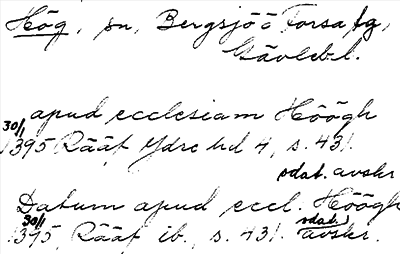 Hög, sn, Bergsjöö Forsa tg,
Gävleb.l.
apud ecclesiam Höögh
30/1
1395 Rääf Ydre hd 4, s. 431.
odat. avskr
Datum apud eccl. Höögh
30/1 odat.
1395, Rääf ib., s. 431. avskr.